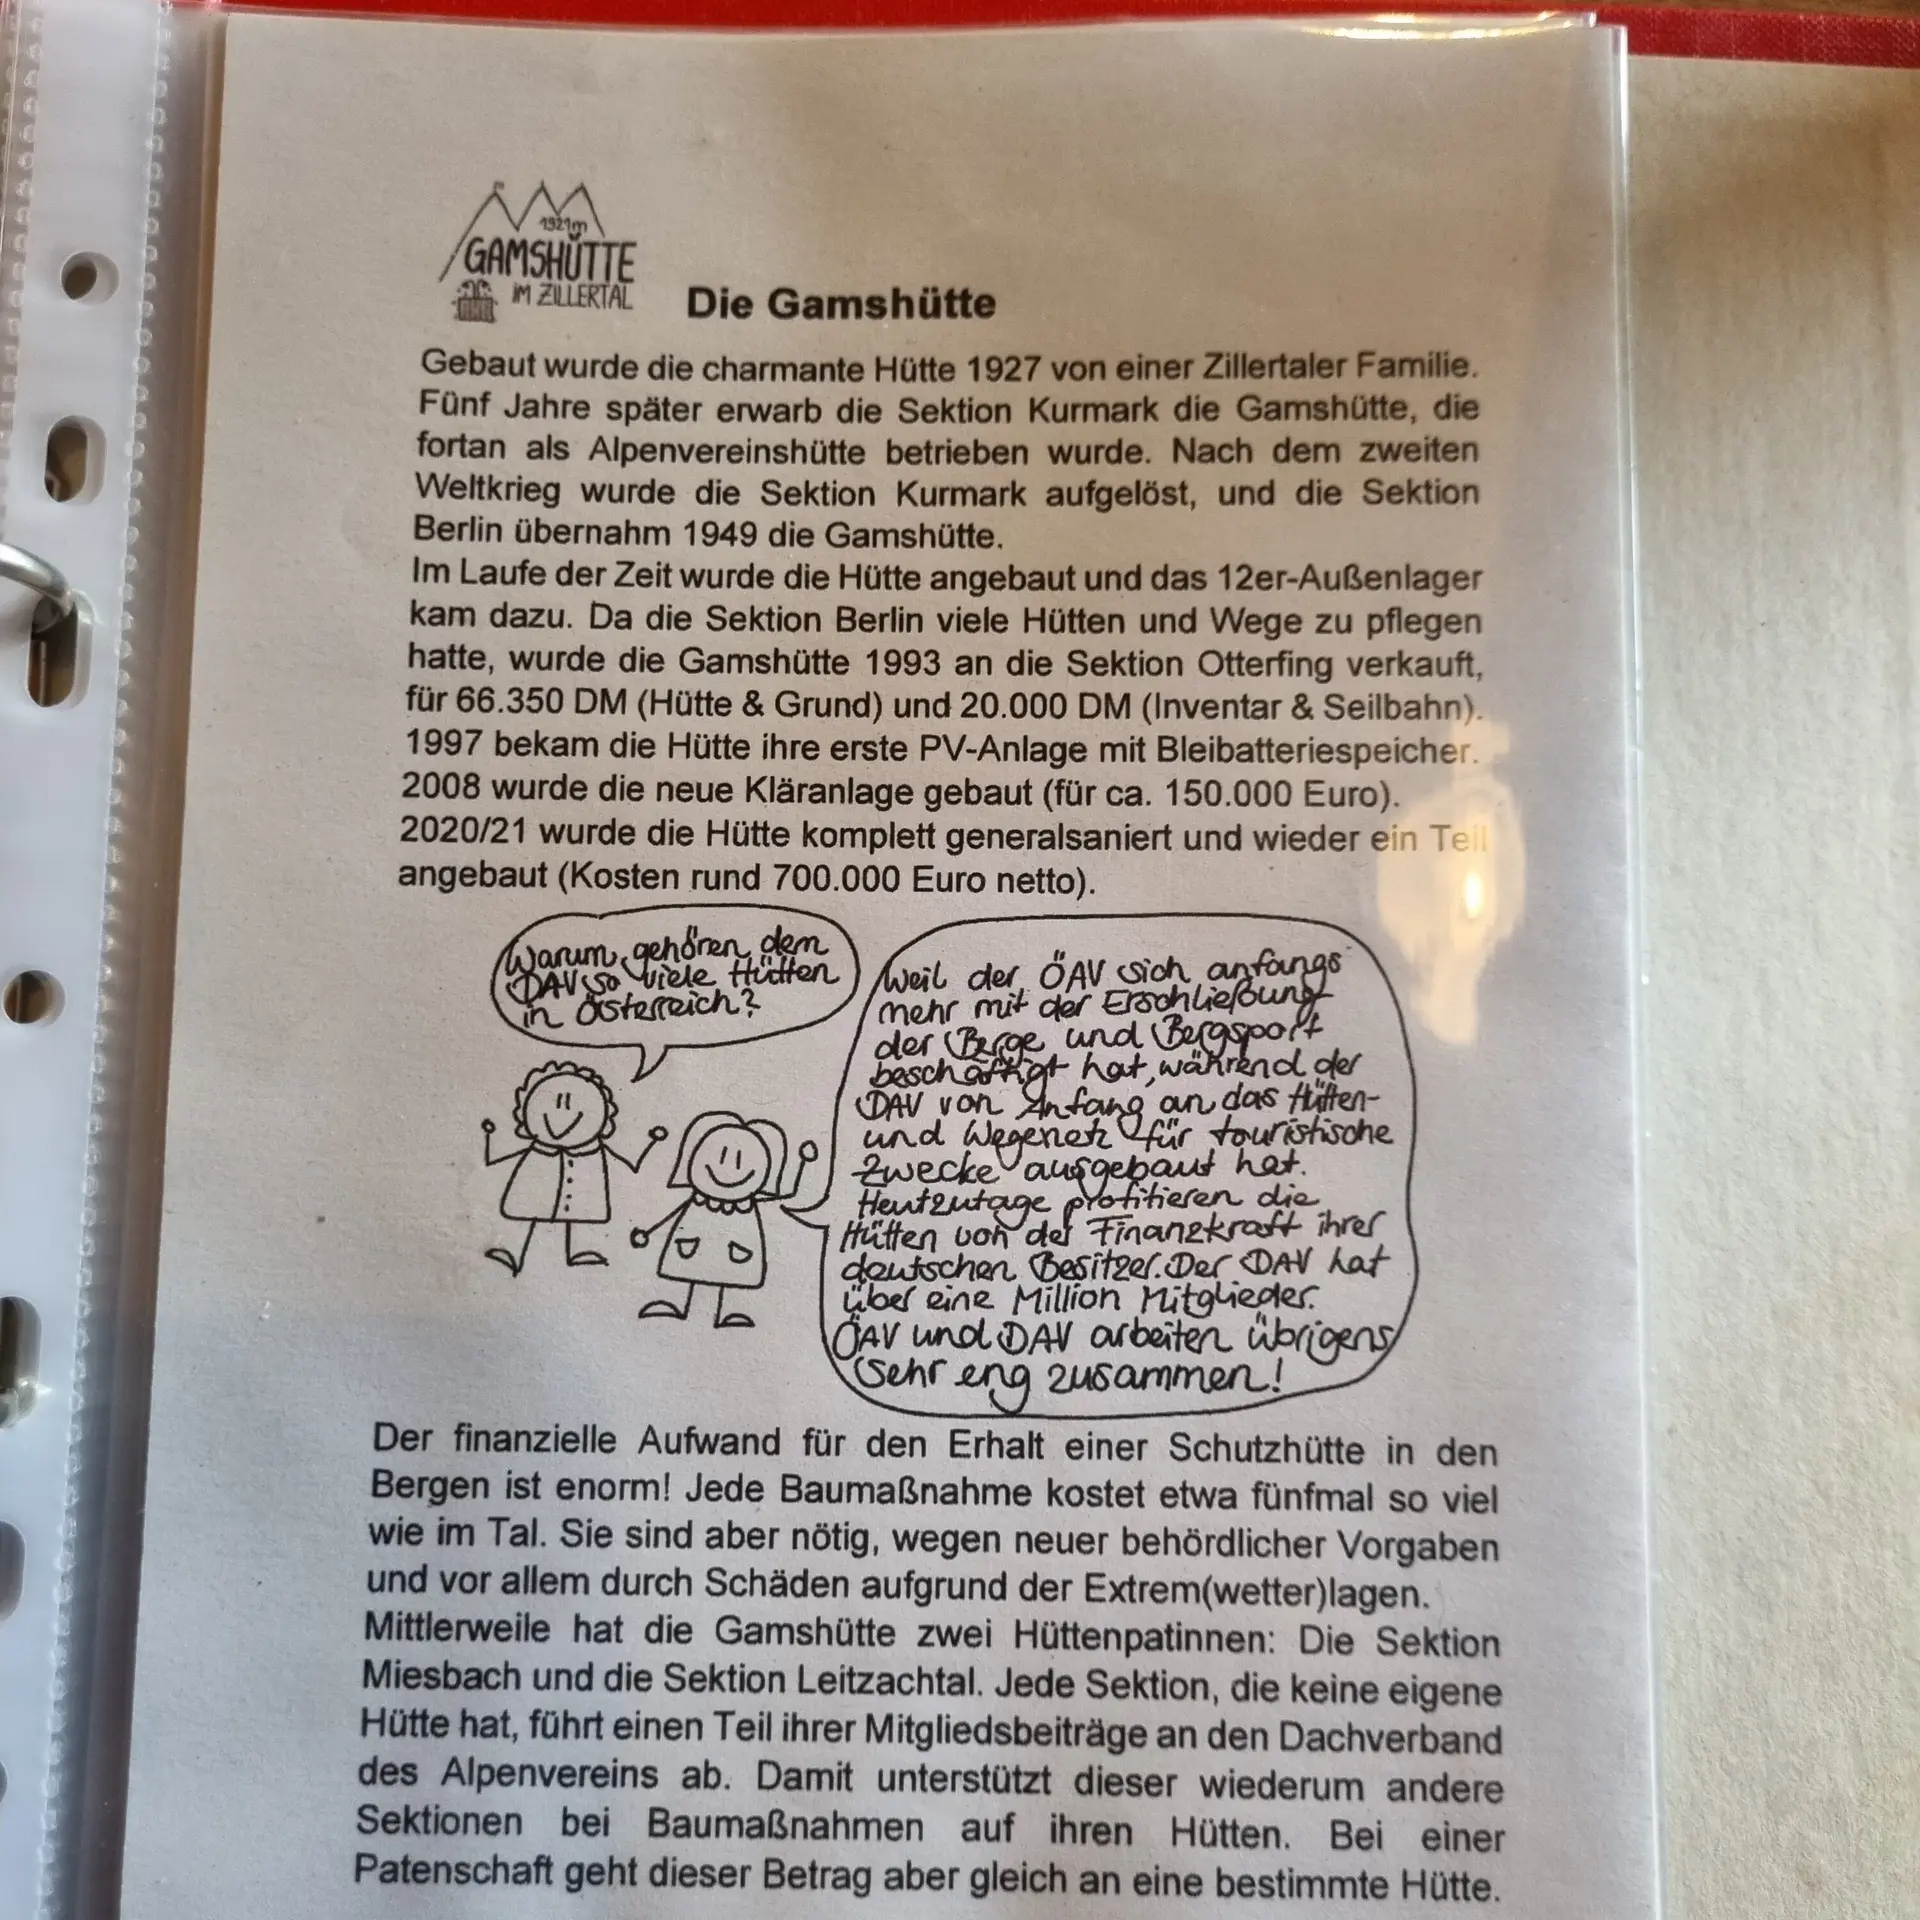 1921m
GAMSHÜTTE
IM ZILLERTAL
Die Gamshütte
Gebaut wurde die charmante Hütte 1927 von einer Zillertaler Familie.
Fünf Jahre später erwarb die Sektion Kurmark die Gamshütte, die
fortan als Alpenvereinshütte betrieben wurde. Nach dem zweiten
Weltkrieg wurde die Sektion Kurmark aufgelöst, und die Sektion
Berlin übernahm 1949 die Gamshütte.
Im Laufe der Zeit wurde die Hütte angebaut und das 12er-Außenlager
kam dazu. Da die Sektion Berlin viele Hütten und Wege zu pflegen
hatte, wurde die Gamshütte 1993 an die Sektion Otterfing verkauft,
für 66.350 DM (Hütte & Grund) und 20.000 DM (Inventar & Seilbahn).
1997 bekam die Hütte ihre erste PV-Anlage mit Bleibatteriespeicher.
2008 wurde die neue Kläranlage gebaut (für ca. 150.000 Euro).
2020/21 wurde die Hütte komplett generalsaniert und wieder ein Teil
angebaut (Kosten rund 700.000 Euro netto).
Warum gehören dem
DAV so viele Hütten
in Österreich?
Weil der ÖAV sich anfangs
mehr mit der Erschließung
der Berge und Bergsport
beschäftigt hat, während der
DAV von Anfang an das Hütten-
und Wegenetz für touristische
Zwecke ausgebaut hat.
Heutzutage profitieren die
Hütten von der Finanzkraft ihrer
deutschen Besitzer. Der DAV hat
über eine Million Mitglieder.
ÖAV und DAV arbeiten übrigens
sehr eng zusammen!
Der finanzielle Aufwand für den Erhalt einer Schutzhütte in den
Bergen ist enorm! Jede Baumaßnahme kostet etwa fünfmal so viel
wie im Tal. Sie sind aber nötig, wegen neuer behördlicher Vorgaben
und vor allem durch Schäden aufgrund der Extrem(wetter)lagen.
Mittlerweile hat die Gamshütte zwei Hüttenpatinnen: Die Sektion
Miesbach und die Sektion Leitzachtal. Jede Sektion, die keine eigene
Hütte hat, führt einen Teil ihrer Mitgliedsbeiträge an den Dachverband
des Alpenvereins ab. Damit unterstützt dieser wiederum andere
Sektionen bei Baumaßnahmen auf ihren Hütten. Bei einer
Patenschaft geht dieser Betrag aber gleich an eine bestimmte Hütte.